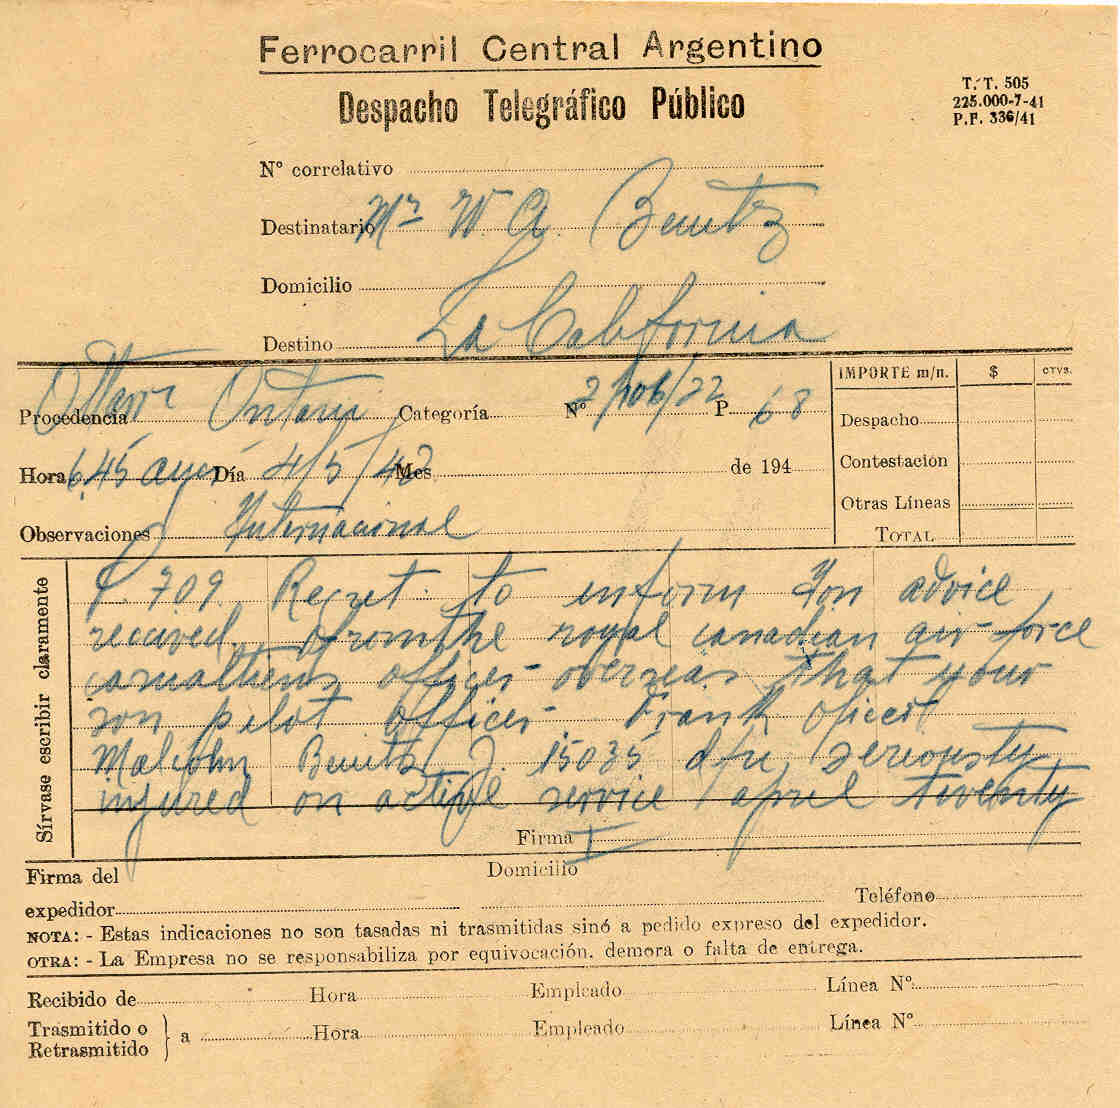 Ferrocarril Central Argentino
Despacho Telegráfico Público
T. T. 505
225.000-7-41
P.F. 336/41
N° correlativo
Destinatario Mr W. A. Benitz
Domicilio
Destino La California
Procedencia Ottawa Ontario Categoría N° 2/106/22 P 68
Hora 6.45 ayer Día 4/5/42 Mes de 194
Observaciones Internacional
IMPORTE m/n. $ CTVS.
Despacho
Contestación
Otras Líneas
TOTAL
Sírvase escribir claramente
709 Regret to inform you advice
received from the royal canadian air force
casualtiens officer overseas that your
son pilot officer Frank oficert
Malcolm Benitz J. 15035 dfu, seriously
injured on active service april twenty
Firma
Firma del expedidor
Domicilio
Teléfono
NOTA: - Estas indicaciones no son tasadas ni trasmitidas sinó a pedido expreso del expedidor.
OTRA: - La Empresa no se responsabiliza por equivocación, demora o falta de entrega.
Recibido de Hora Empleado Línea N°
Trasmitido o Retrasmitido } a Hora Empleado Línea N°